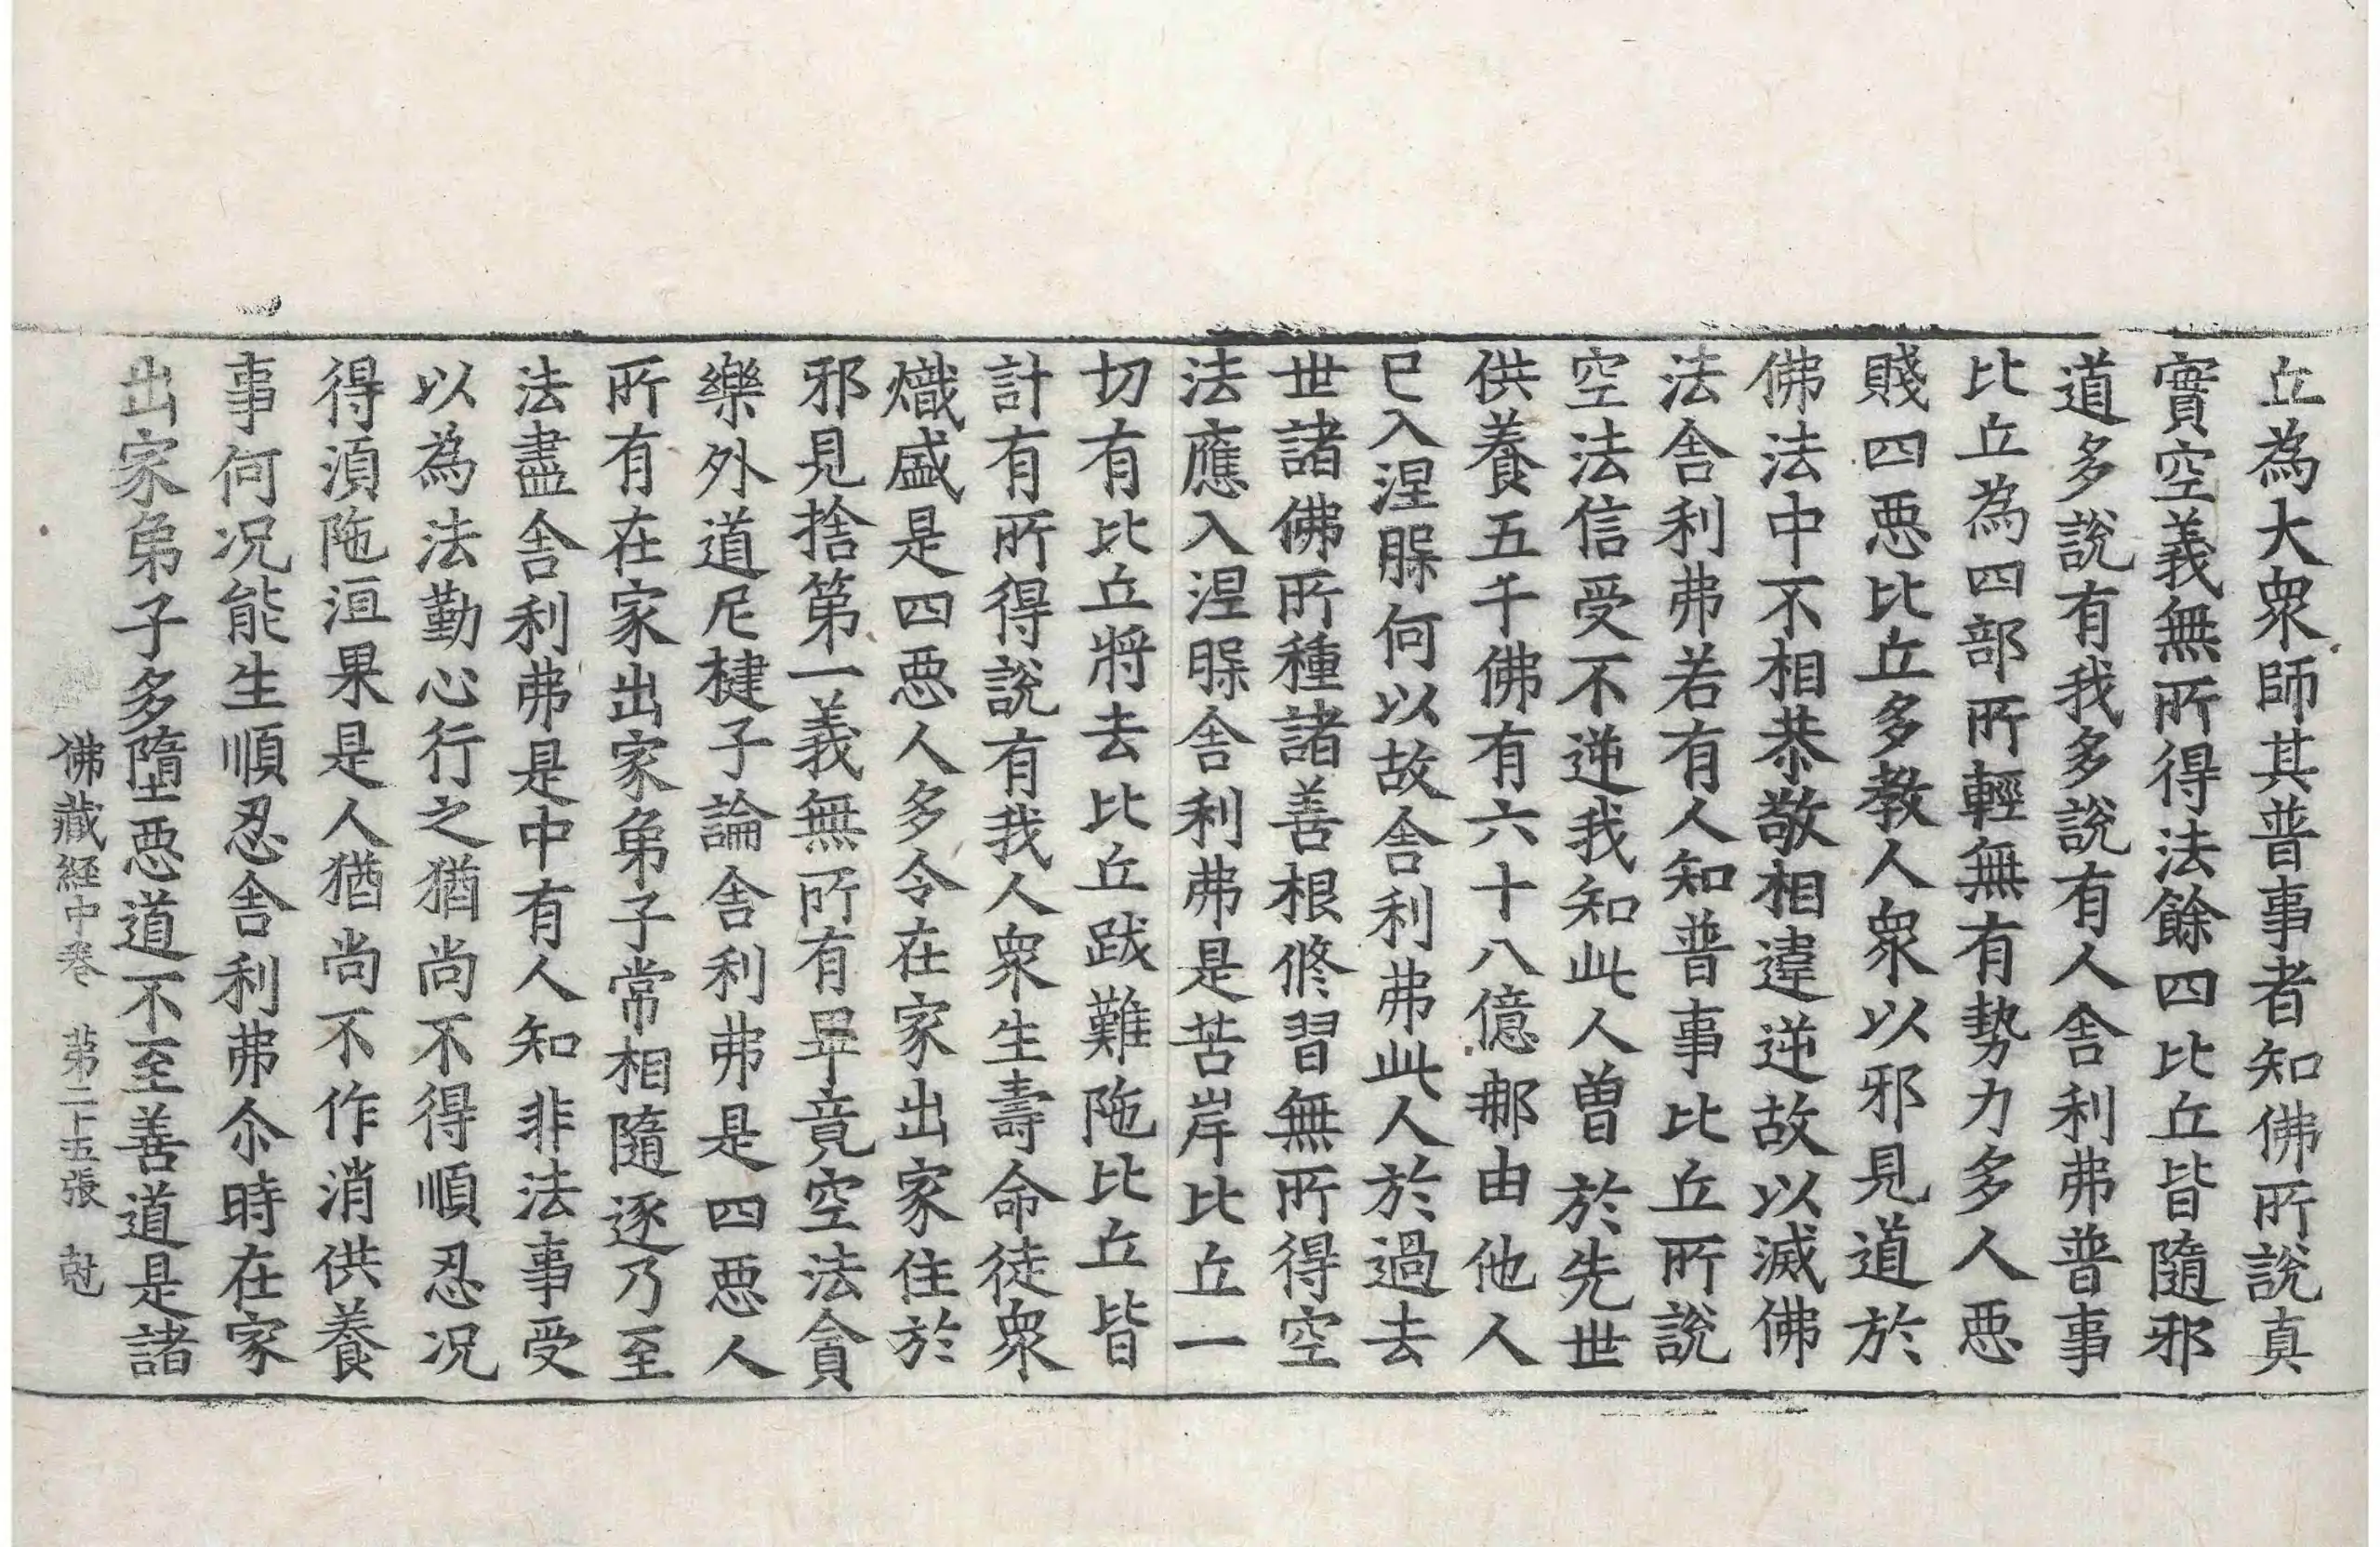 丘為大衆師其普事者知佛所說真
實空義無所得法餘四比丘皆隨邪
道多說有我多說有人舎利弗普事
比丘為四部所輕無有勢力多人惡
賤四惡比丘多教人衆以邪見道於
佛法中不相恭敬相違逆故以滅佛
法舎利弗若有人知普事比丘所說
空法信受不逆我知此人曽於先世
供養五千佛有六十八億那由他人
已入涅槃何以故舎利弗此人於過去
世諸佛所種諸善根修習無所得空
法應入涅槃舎利弗是苦岸比丘一
切有比丘將去比丘跋難陁比丘皆
計有所得說有我人衆生壽命徒衆
熾盛是四惡人多令在家出家住於
邪見捨第一義無所有畢竟空法貪
樂外道尼揵子論舎利弗是四惡人
所有在家出家弟子常相隨逐乃至
法盡舎利弗是中有人知非法事受
以為法勤心行之猶尚不得順忍况
得湏陁洹果是人猶尚不作消供養
事何况能生順忍舎利弗尒時在家
出家弟子多墮惡道不至善道是諸
佛藏経中卷 苐二十五張 尅